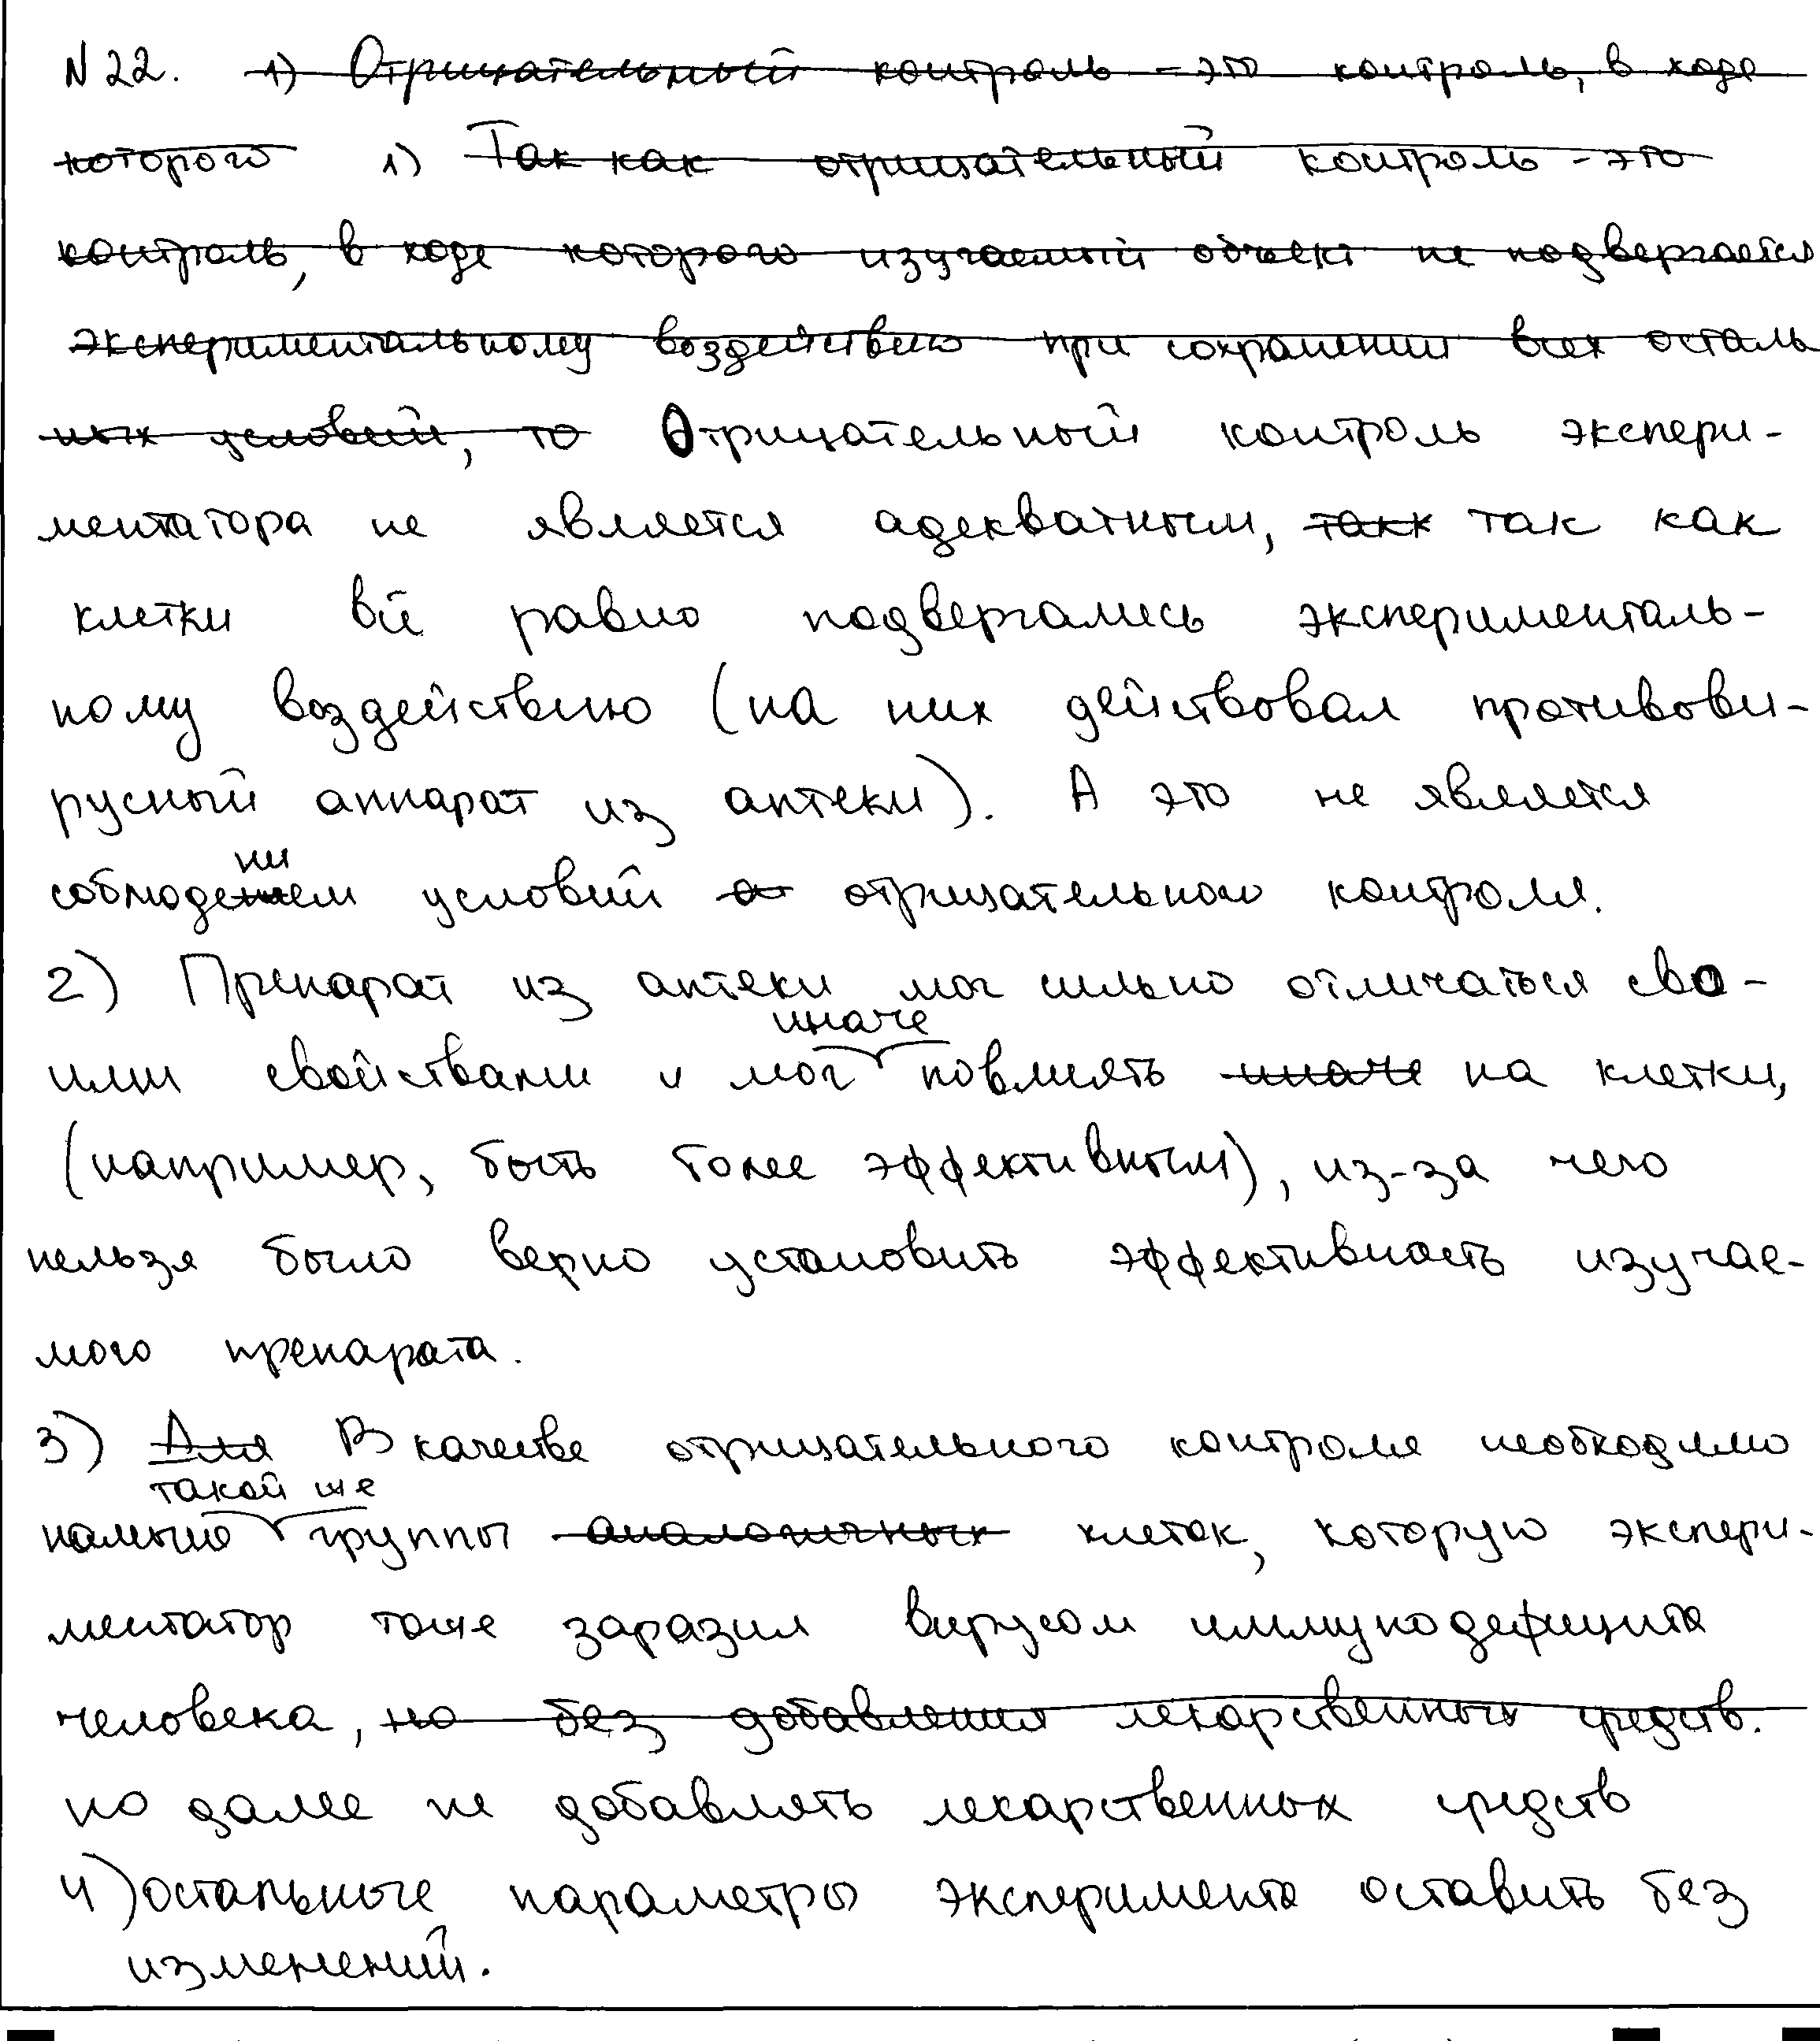 N22. 1) Отрицательный контроль - это контроль, в ходе
которого 1) Так как отрицательный контроль - это
контроль, в ходе которого изучаемый объект не подвергается
экспериментальному воздействию при сохранении всех осталь
ных условий, то Отрицательный контроль экспери-
ментатора не является адекватным, такк так как
клетки всё равно подвергались эксперименталь-
ному воздействию (на них действовал противови-
русный аппарат из аптеки). А это не является
ни
соблюдением условий о отрицательного контроля.
2) Препарат из аптеки мог сильно отличаться сво-
иначе
ими свойствами и мог повлиять иначе на клетки,
(например, быть более эффективным), из-за чего
нельзя было верно установить эффективность изучае-
мого препарата.
3) Для В качестве отрицательного контроля необходимо
такой же
наличие группы аналогичных клеток, которую экспери-
ментатор тоже заразил вирусом иммунодефицита
человека, но без добавления лекарственных средств.
но далее не добавлять лекарственных средств
4) остальные параметры эксперимента оставить без
изменений.